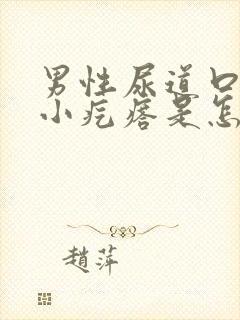 男性尿道口
小疙瘩是怎
趙萍